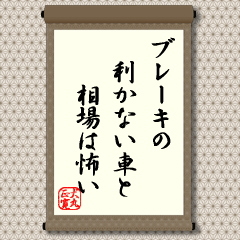 ブレーキの
利かない車と
相場は怖い